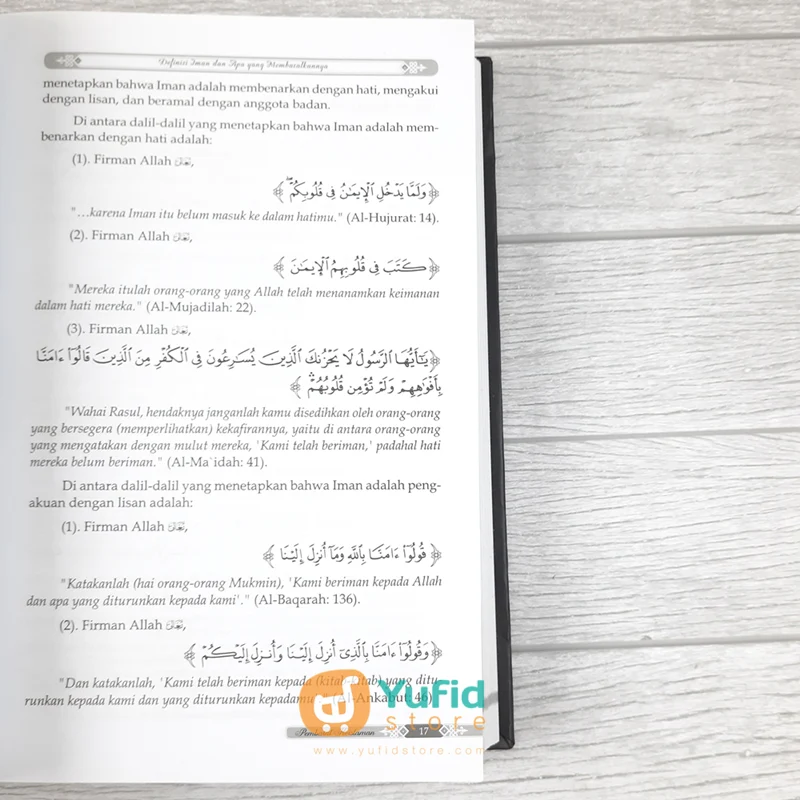 Definisi Iman dan Apa yang Membatalkannya
menetapkan bahwa Iman adalah membenarkan dengan hati, mengakui
dengan lisan, dan beramal dengan anggota badan.
Di antara dalil-dalil yang menetapkan bahwa Iman adalah mem-
benarkan dengan hati adalah:
(1). Firman Allah تعالى,
﴿وَلَمَّا يَدْخُلِ ٱلْإِيمَٰنُ فِى قُلُوبِكُمْ ۖ﴾
"...karena Iman itu belum masuk ke dalam hatimu." (Al-Hujurat: 14).
(2). Firman Allah تعالى,
﴿كَتَبَ فِى قُلُوبِهِمُ ٱلْإِيمَٰنَ﴾
"Mereka itulah orang-orang yang Allah telah menanamkan keimanan
dalam hati mereka." (Al-Mujadilah: 22).
(3). Firman Allah تعالى,
﴿يَٰٓأَيُّهَا ٱلرَّسُولُ لَا يَحْزُنكَ ٱلَّذِينَ يُسَٰرِعُونَ فِى ٱلْكُفْرِ مِنَ ٱلَّذِينَ قَالُوٓا۟ ءَامَنَّا
بِأَفْوَٰهِهِمْ وَلَمْ تُؤْمِن قُلُوبُهُمْ ۛ﴾
"Wahai Rasul, hendaknya janganlah kamu disedihkan oleh orang-orang
yang bersegera (memperlihatkan) kekafirannya, yaitu di antara orang-orang
yang mengatakan dengan mulut mereka, 'Kami telah beriman,' padahal hati
mereka belum beriman." (Al-Ma`idah: 41).
Di antara dalil-dalil yang menetapkan bahwa Iman adalah peng-
akuan dengan lisan adalah:
(1). Firman Allah تعالى,
﴿قُولُوٓا۟ ءَامَنَّا بِٱللَّهِ وَمَآ أُنزِلَ إِلَيْنَا﴾
"Katakanlah (hai orang-orang Mukmin), 'Kami beriman kepada Allah
dan apa yang diturunkan kepada kami'." (Al-Baqarah: 136).
(2). Firman Allah تعالى,
﴿وَقُولُوٓا۟ ءَامَنَّا بِٱلَّذِىٓ أُنزِلَ إِلَيْنَا وَأُنزِلَ إِلَيْكُمْ﴾
"Dan katakanlah, 'Kami telah beriman kepada (kitab-kitab) yang ditu-
runkan kepada kami dan yang diturunkan kepadamu (Al-Ankabut: 46).
17
Yufid
store
www.yufidstore.com